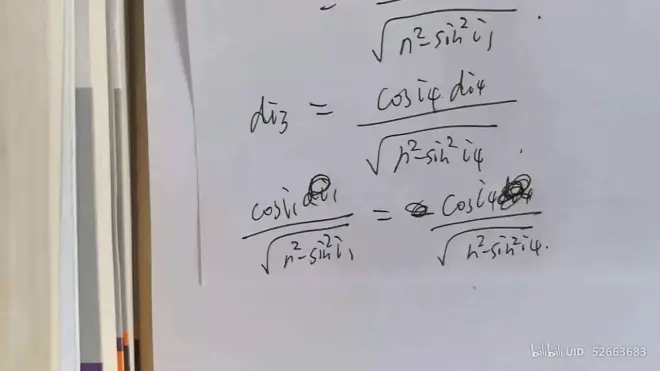 = 
√(n²-sin²i₁) .
di₃ = cosi₄ di₄ / √(n²-sin²i₄) .
cosi₁ / √(n²-sin²i₁) = cosi₄ / √(n²-sin²i₄) .
bilibili UID 52663683